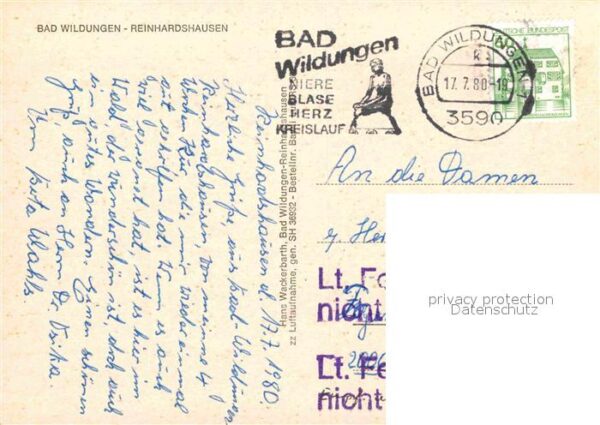 BAD WILDUNGEN - REINHARDSHAUSEN
BAD
Wildungen
NIERE
BLASE
HERZ
KREISLAUF
BAD WILDUNGEN
17.7.80-19
3590
DEUTSCHE BUNDESPOST
Reinhardshausen d. 17.7.1980.
Herzliche Grüße aus Bad-Wildungen
Reinhardshausen von meiner 4
Wochen Kur, die mir wieder einmal
gut geholfen hat. Wenn es auch
viel geregnet hat, ist es hier im
Wald der wunderschön ist doch auch
ein gutes Wandern. Einen schönen
Gruß auch an Herrn Dr.
Ihre Wahls
Hans Wackerbarth, Bad Wildungen-Reinhardshausen
zz Luftaufnahme, gen. SH 36932 - Bestellnr.
An die Damen
Lt.
nicht
Lt.
nicht
privacy protection
Datenschutz